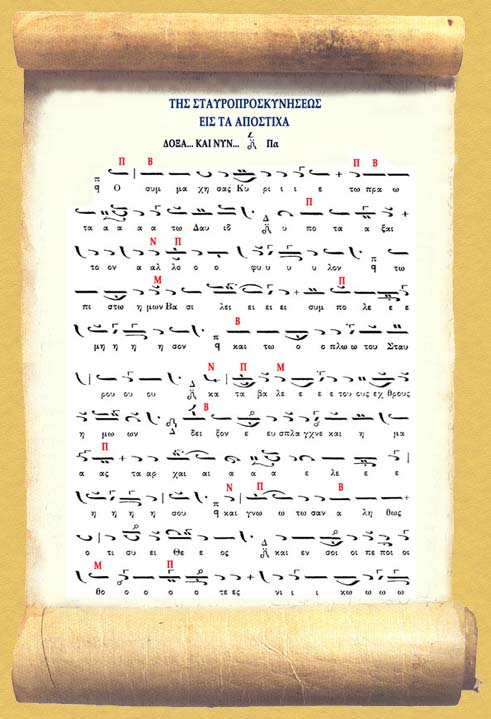 ΤΗΣ ΣΤΑΥΡΟΠΡΟΣΚΥΝΗΣΕΩΣ
ΕΙΣ ΤΑ ΑΠΟΣΤΙΧΑ
ΔΟΞΑ... ΚΑΙ ΝΥΝ... Πα
Π Β Π Β
Ο συμ μα χη σας Κυ ρι ι ι ε τω πρα ω
Π
τα α α α α τω Δαυ ιδ Δ υ πο τα α ξαι
Ν Π
το ον α αλ λο ο ο φυ υ υ λον τω
Μ Π
πι στω η μων Βα σι λει ει ει ει συμ πο λε ε ε
Β
μη η η η σον και τω ο ο πλω ω του Σταυ
Ν Π Μ
ρου ου ου Δ κα τα βα λε ε ε ε του ους εχ θρους
Β
η μω ων Δ δει ξον ε ευ σπλα γχνε και η μα
Π
α ας τα αρ χαι αι α α α ε λε ε ε
Ν Π Β
η η η η σου και γνω ω τω σαν α λη θως
ο τι συ ει Θε ε ος Δ και εν σοι οι πε ποι οι
Μ Π
θο ο ο ο ο τε ες νι ι ι κω ω ω ω